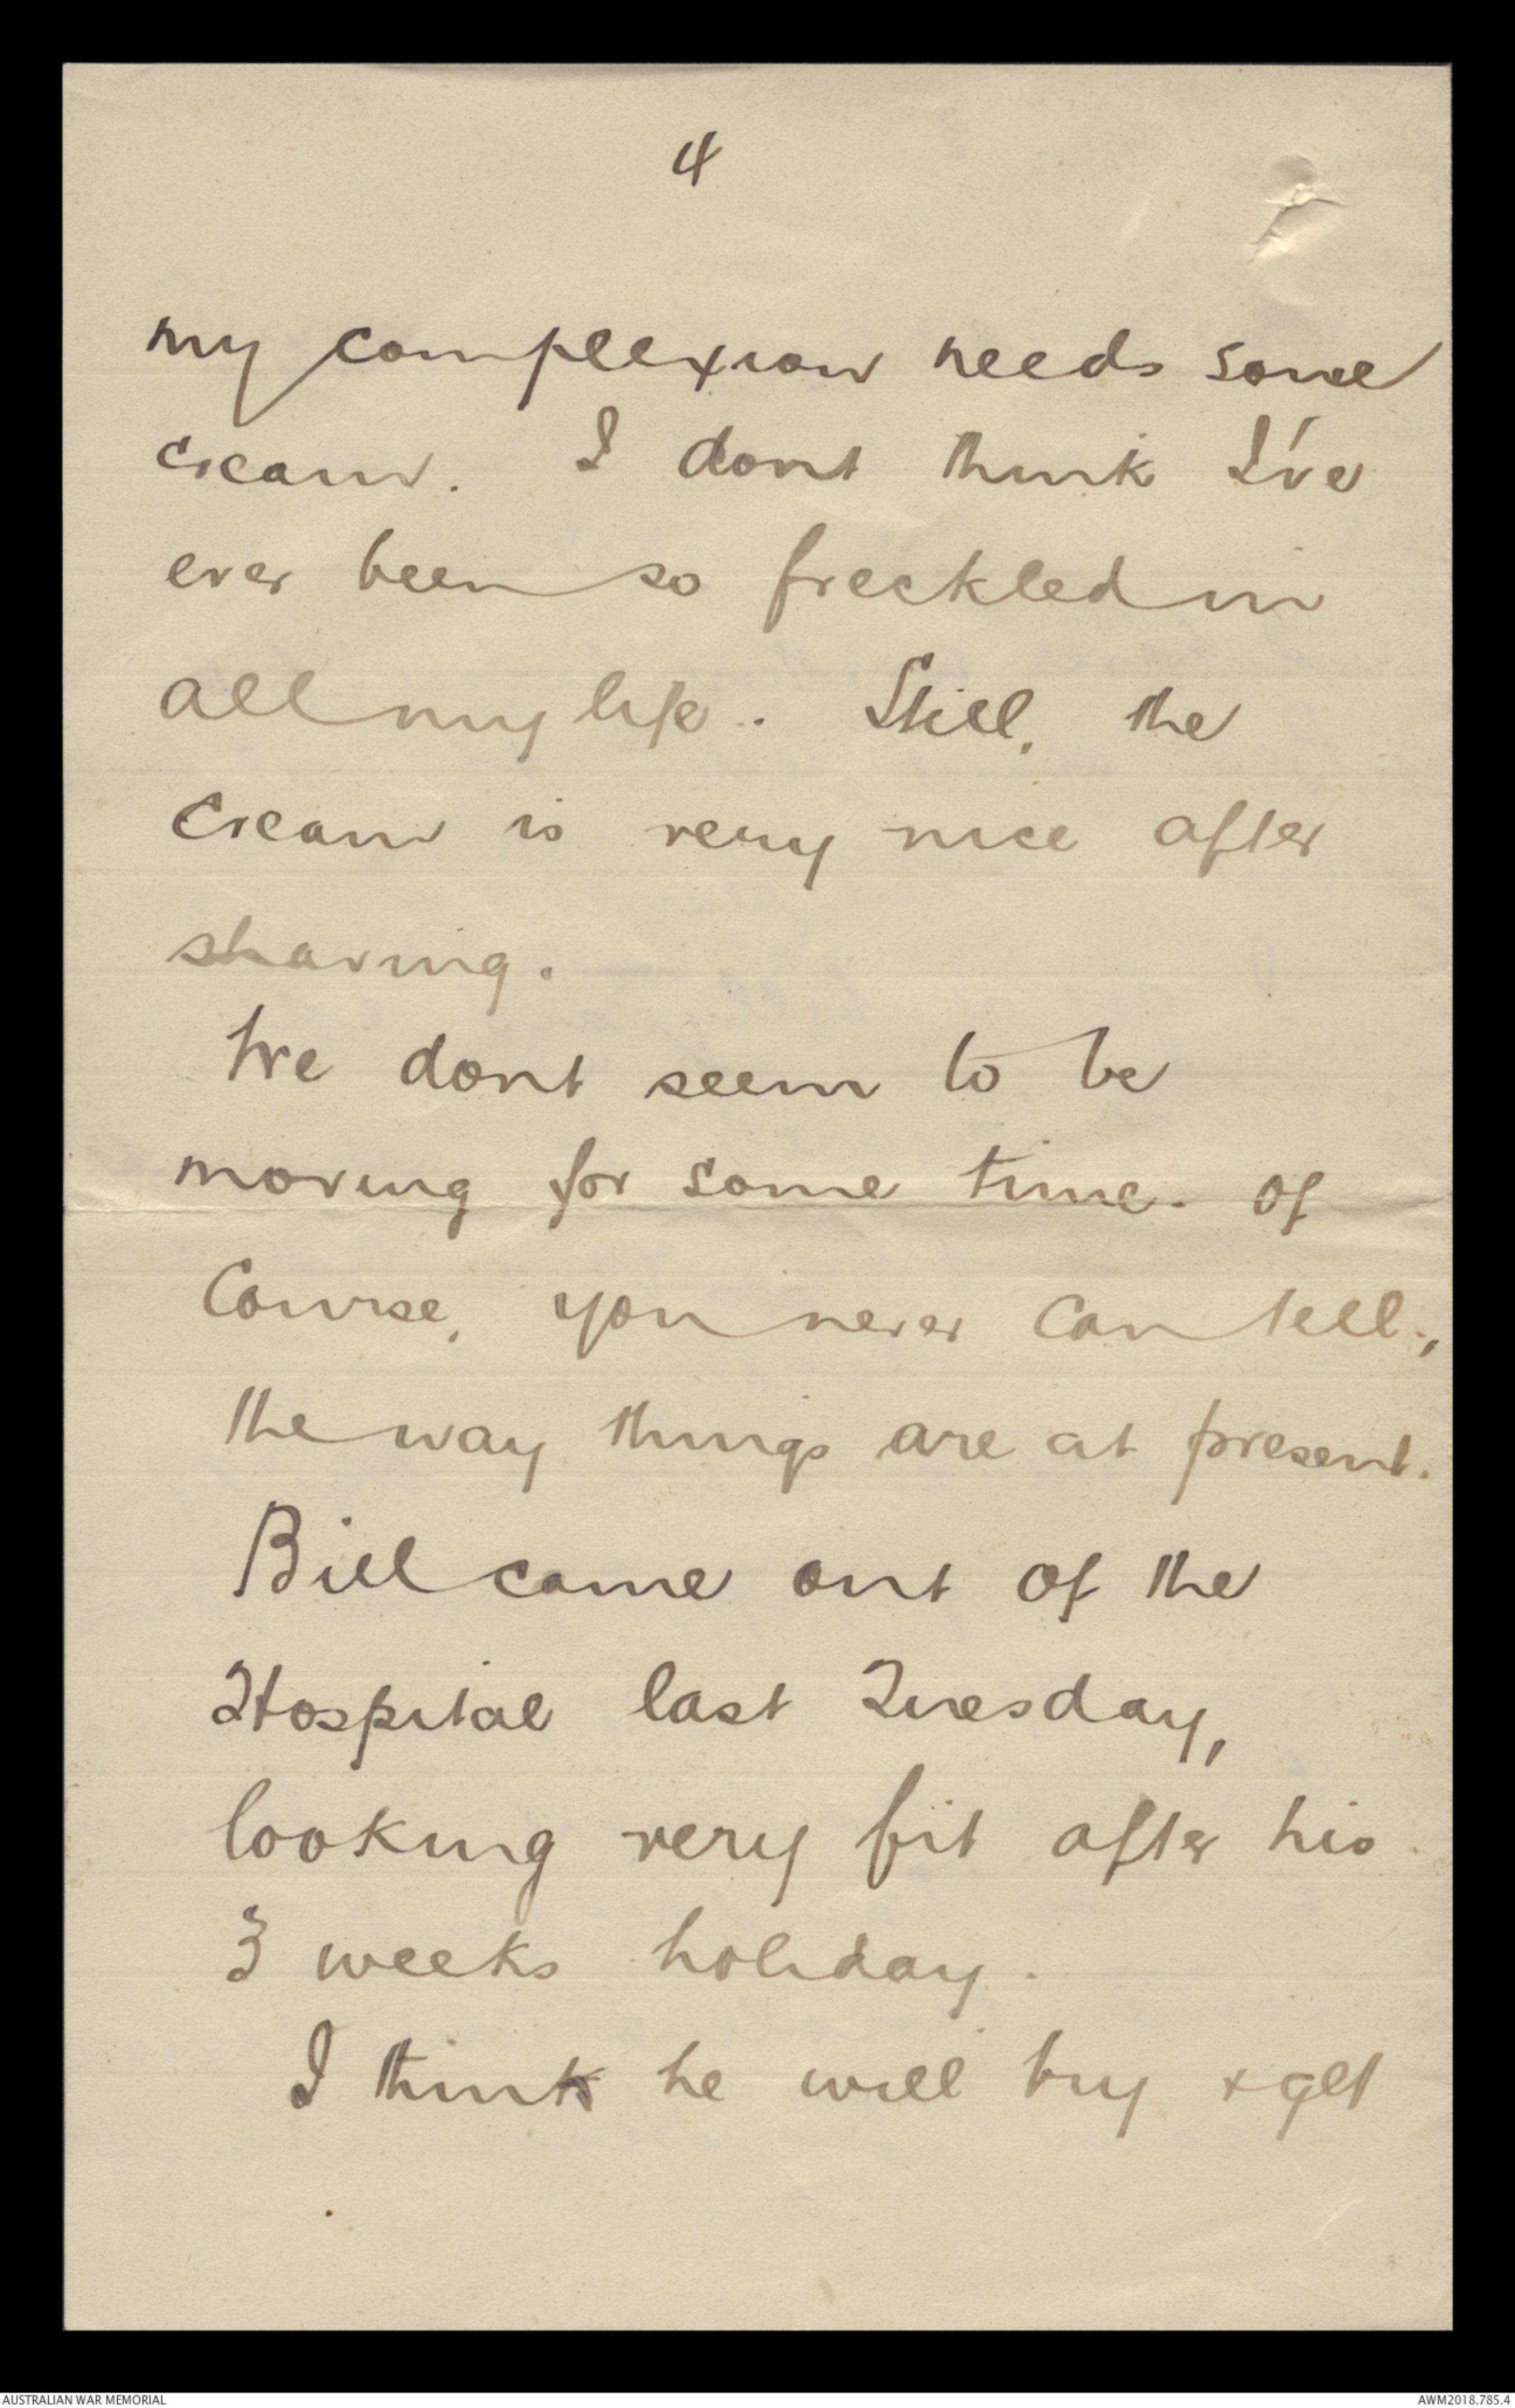 4
my complexion needs some
cream. I dont think I've
ever been so freckled in
all my life. Still, the
cream is very nice after
shaving.
We dont seem to be
moving for some time. Of
Course, you never can tell,
the way things are at present.
Bill came out of the
Hospital last Tuesday,
looking very fit after his
3 weeks holiday.
I think he will try + get
AUSTRALIAN WAR MEMORIAL
AWM2018.785.4